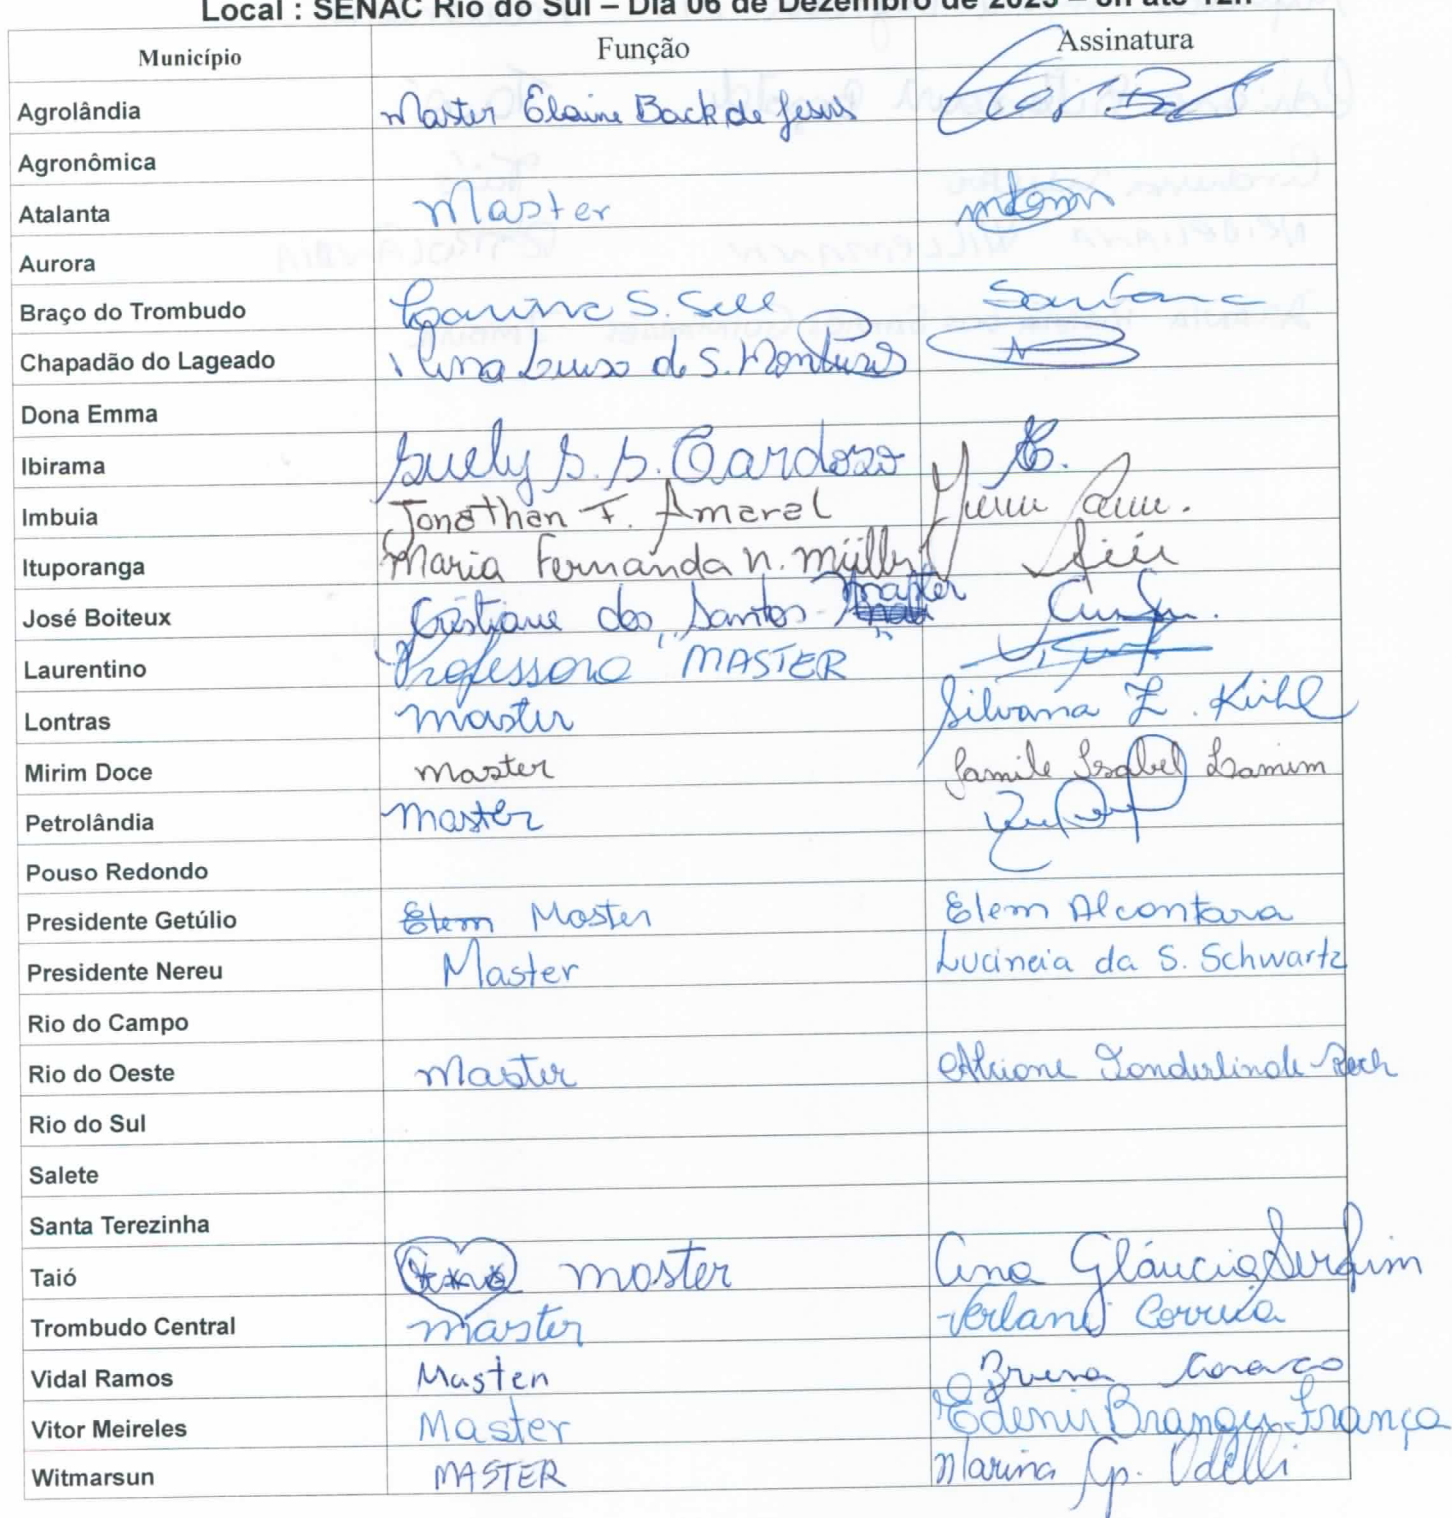 Local : SENAC Rio do Sul – Dia 06 de Dezembro de 2023 – 8h até 12h
Município Função Assinatura
Agrolândia Master Elaine Back de Jesus
Agronômica
Atalanta Master
Aurora
Braço do Trombudo S. Sell Santana
Chapadão do Lageado de S.
Dona Emma
Ibirama Suely S. S. Cardozo
Imbuia Jonathan F. Amaral
Ituporanga Maria Fernanda N. Müller
José Boiteux Cristiane dos Santos - Master
Laurentino Professora "MASTER"
Lontras Master Silvana Z. Kühl
Mirim Doce Master Jamile Isabel Lamim
Petrolândia Master
Pouso Redondo
Presidente Getúlio Elem Master Elem Alcantara
Presidente Nereu Master Lucineia da S. Schwartz
Rio do Campo
Rio do Oeste Master Alcione
Rio do Sul
Salete
Santa Terezinha
Taió master Ana Gláucia Serafim
Trombudo Central master Correia
Vidal Ramos Master Bruna
Vitor Meireles Master Edenir França
Witmarsun MASTER Marina Ap. Odelli